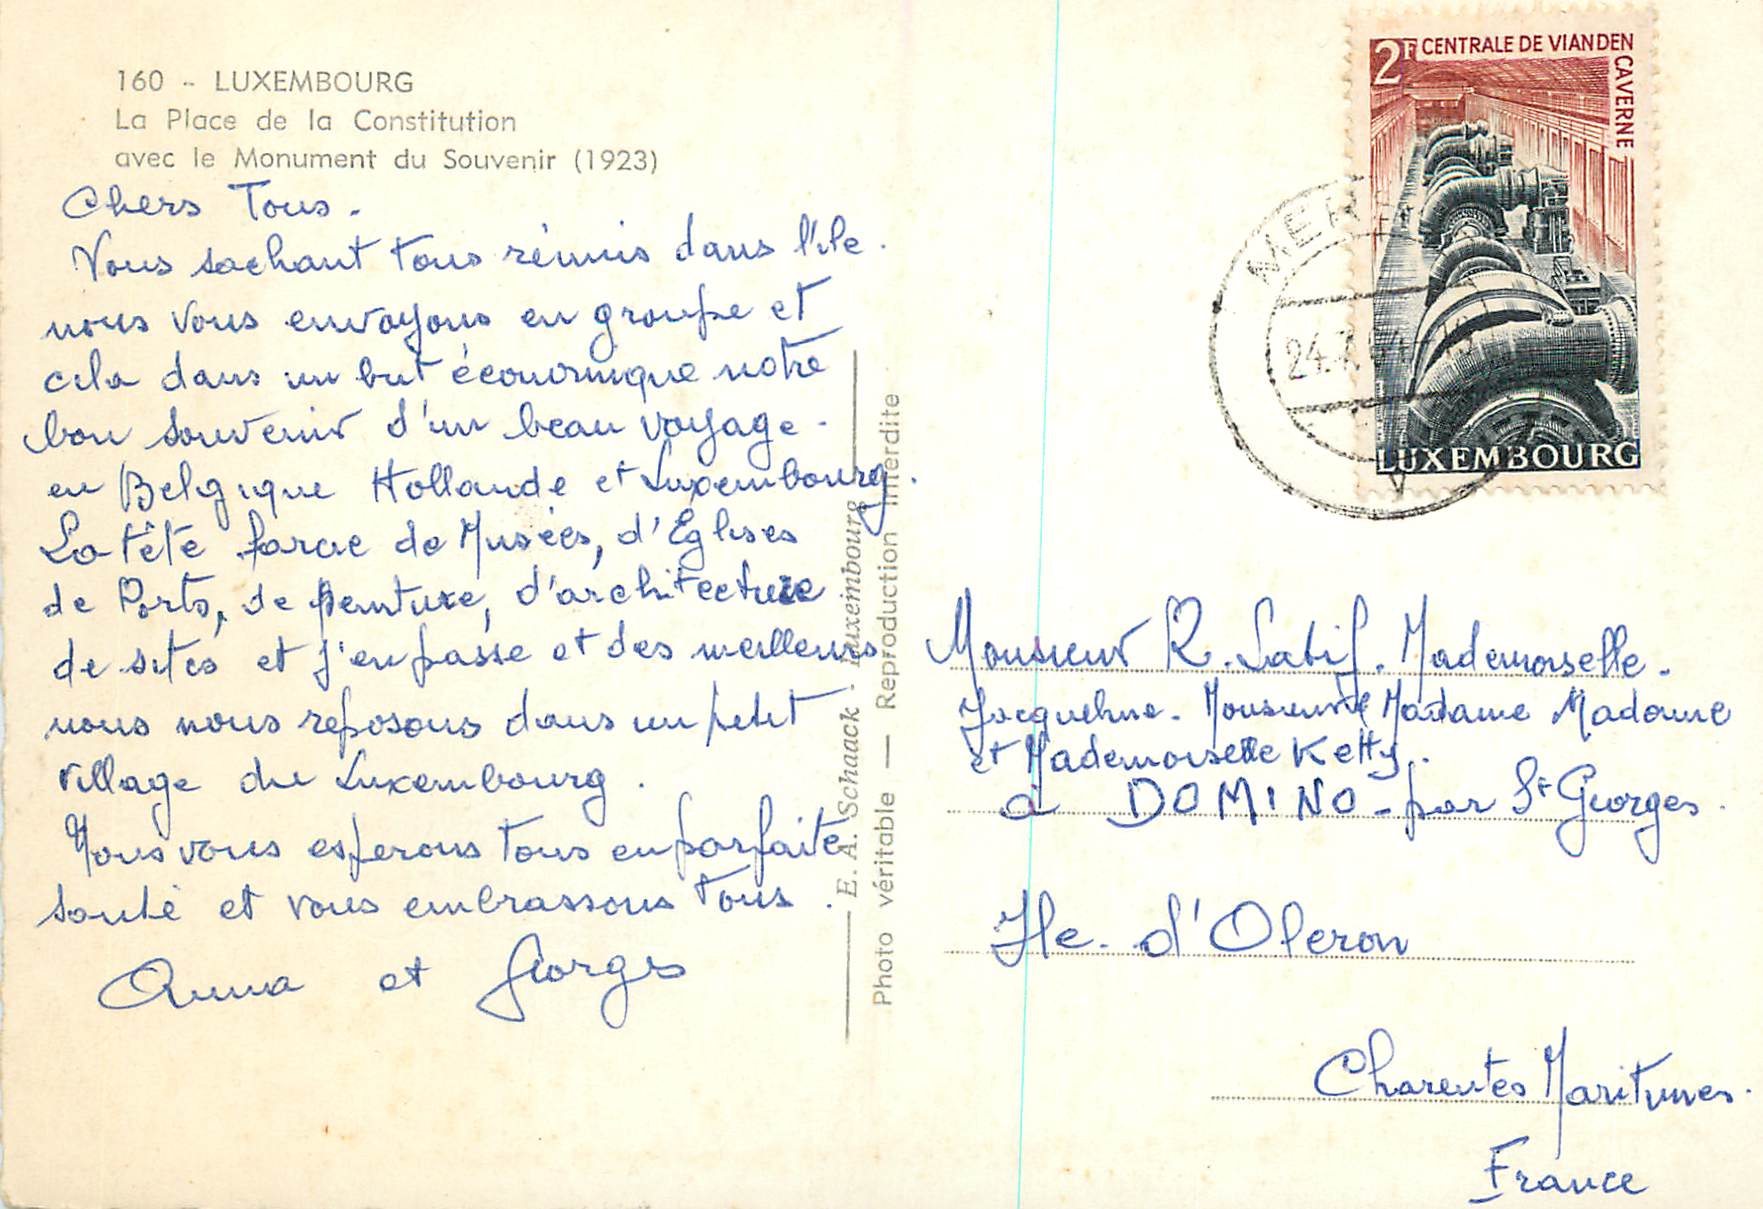 160 - LUXEMBOURG
La Place de la Constitution
avec le Monument du Souvenir (1923)
Chers Tous.
Vous sachant tous réunis dans l'ile.
nous vous envoyons en groupe et
cela dans un but économique notre
bon souvenir d'un beau voyage.
en Belgique Hollande et Luxembourg.
La tête farcie de Musées, d'Églises
de Ports, de peinture, d'architecture
de sites et j'en passe et des meilleurs
nous nous reposons dans un petit
village du Luxembourg.
Nous vous esperons tous en parfaite
santé et vous embrassons tous.
Anna et Georges
E. A. Schaack - Luxembourg
Photo véritable — Reproduction interdite
2F CENTRALE DE VIANDEN
CAVERNE
LUXEMBOURG
24.7.
Monsieur R. Latif. Mademoiselle.
Jacqueline. Monsieur et Madame Madame
et Mademoiselle Ketty.
à DOMINO - par St Georges.
Ile d'Oleron
Charentes Maritimes.
France